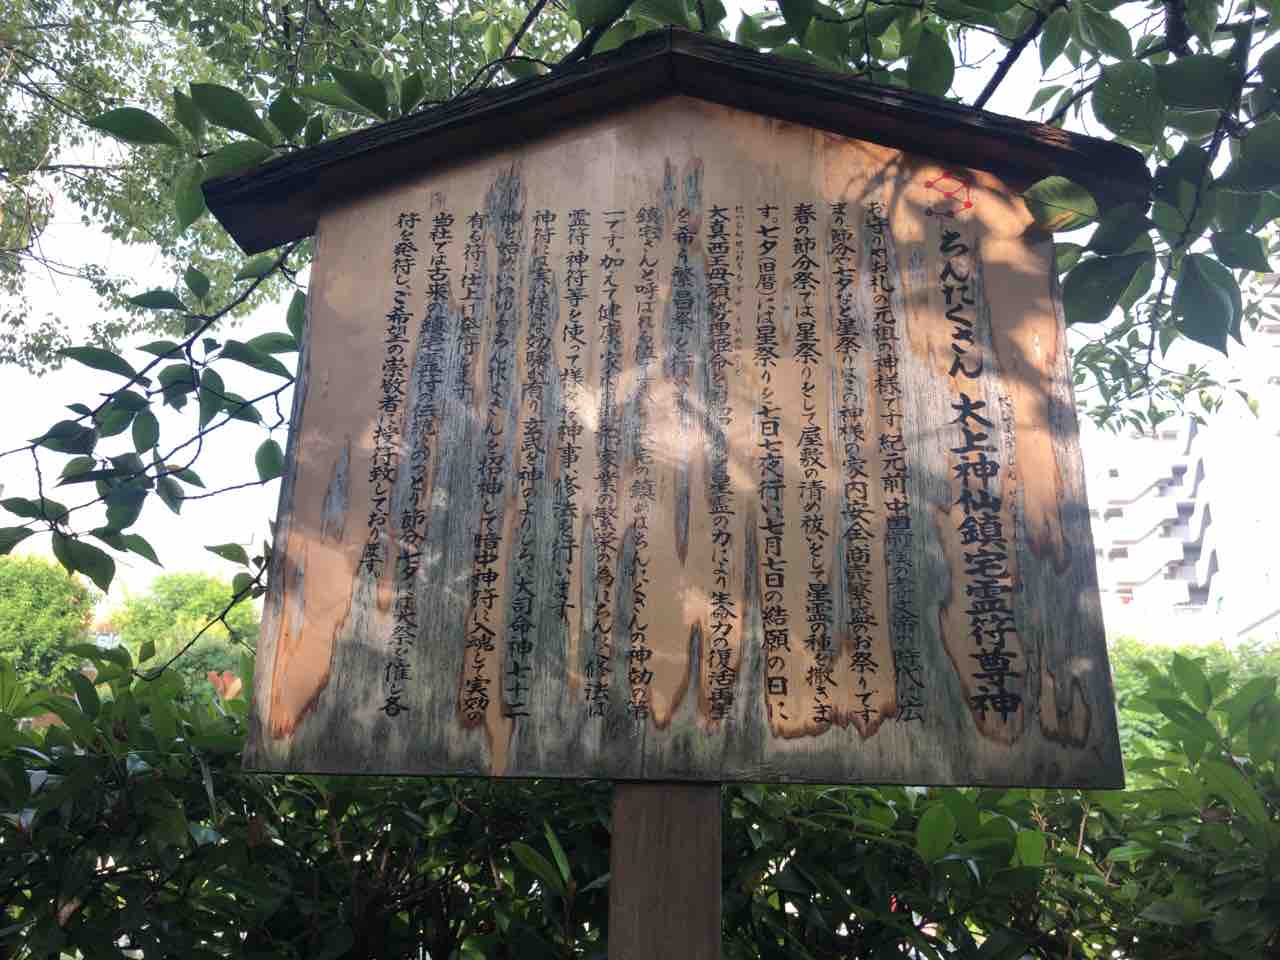 ちんたくさん 太上神仙鎮宅霊符尊神
お守りやお札の元祖の神様です 紀元前 中国前漢の孝文帝の時代に広
まり節分に七夕など星祭りはこの神様の家内安全商売繁盛のお祭りです
春の節分祭では星祭りをして屋敷の清め祓いをして星霊の種を撒きま
す。七夕(旧暦)には星祭りを七日七夜行い七月七日の結願の日に、
大真西王母 星霊の力により生命力の復活再生
を希り繁昌祭を行
鎮宅さんと呼ばれる 宅の鎮めはちんたくさんの神効の第
一です。加えて健康 家業の繁栄の為にちんたく修法は
霊符神符等を使って様々な神事、修法を行います
神符には実に様々な効験が有り玄武を神のよりしろに大司命神七十二
神を始め ちんたくさんを招神して暗中神符に入魂して実効の
有る符に仕上げ発行します
当社では古来の鎮宅霊符の伝統にのっとり節分七夕には大祭を催し各
符を発行し、ご希望の崇敬者に授行致しております。